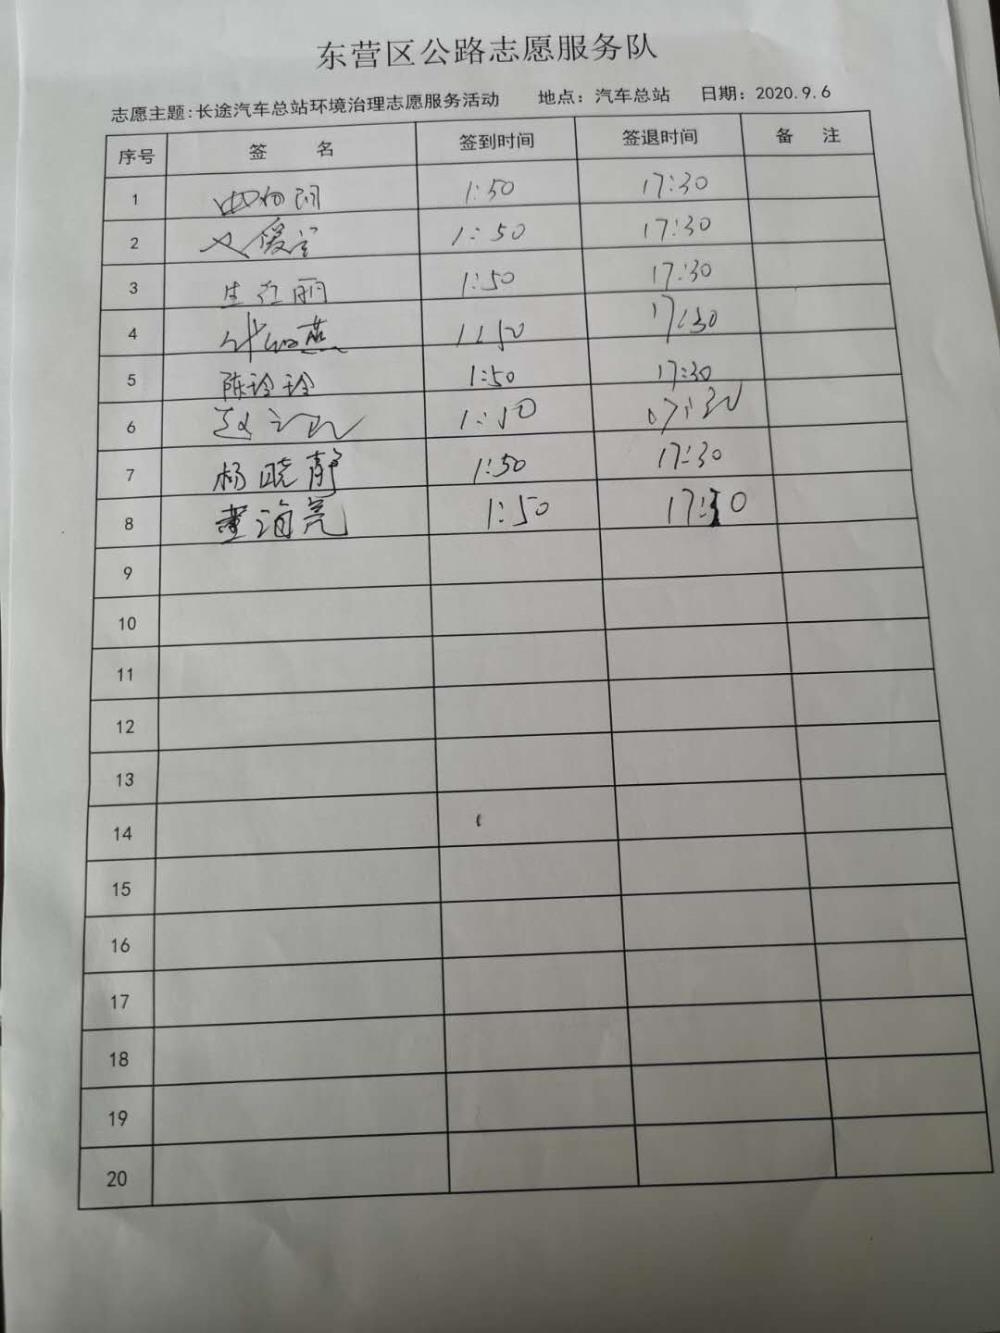 东营区公路志愿服务队
志愿主题:长途汽车总站环境治理志愿服务活动 地点:汽车总站 日期:2020.9.6
序号 签 名 签到时间 签退时间 备 注
1 1:50 17:30
2 1:50 17:30
3 1:50 17:30
4 1:50 17:30
5 陈玲玲 1:50 17:30
6 1:50 17:30
7 杨晓静 1:50 17:30
8 董海亮 1:50 17:30
9
10
11
12
13
14
15
16
17
18
19
20